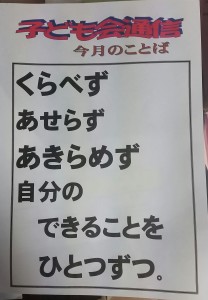 子ども会通信
今月のことば
くらべず
あせらず
あきらめず
自分の
できることを
ひとつずつ。